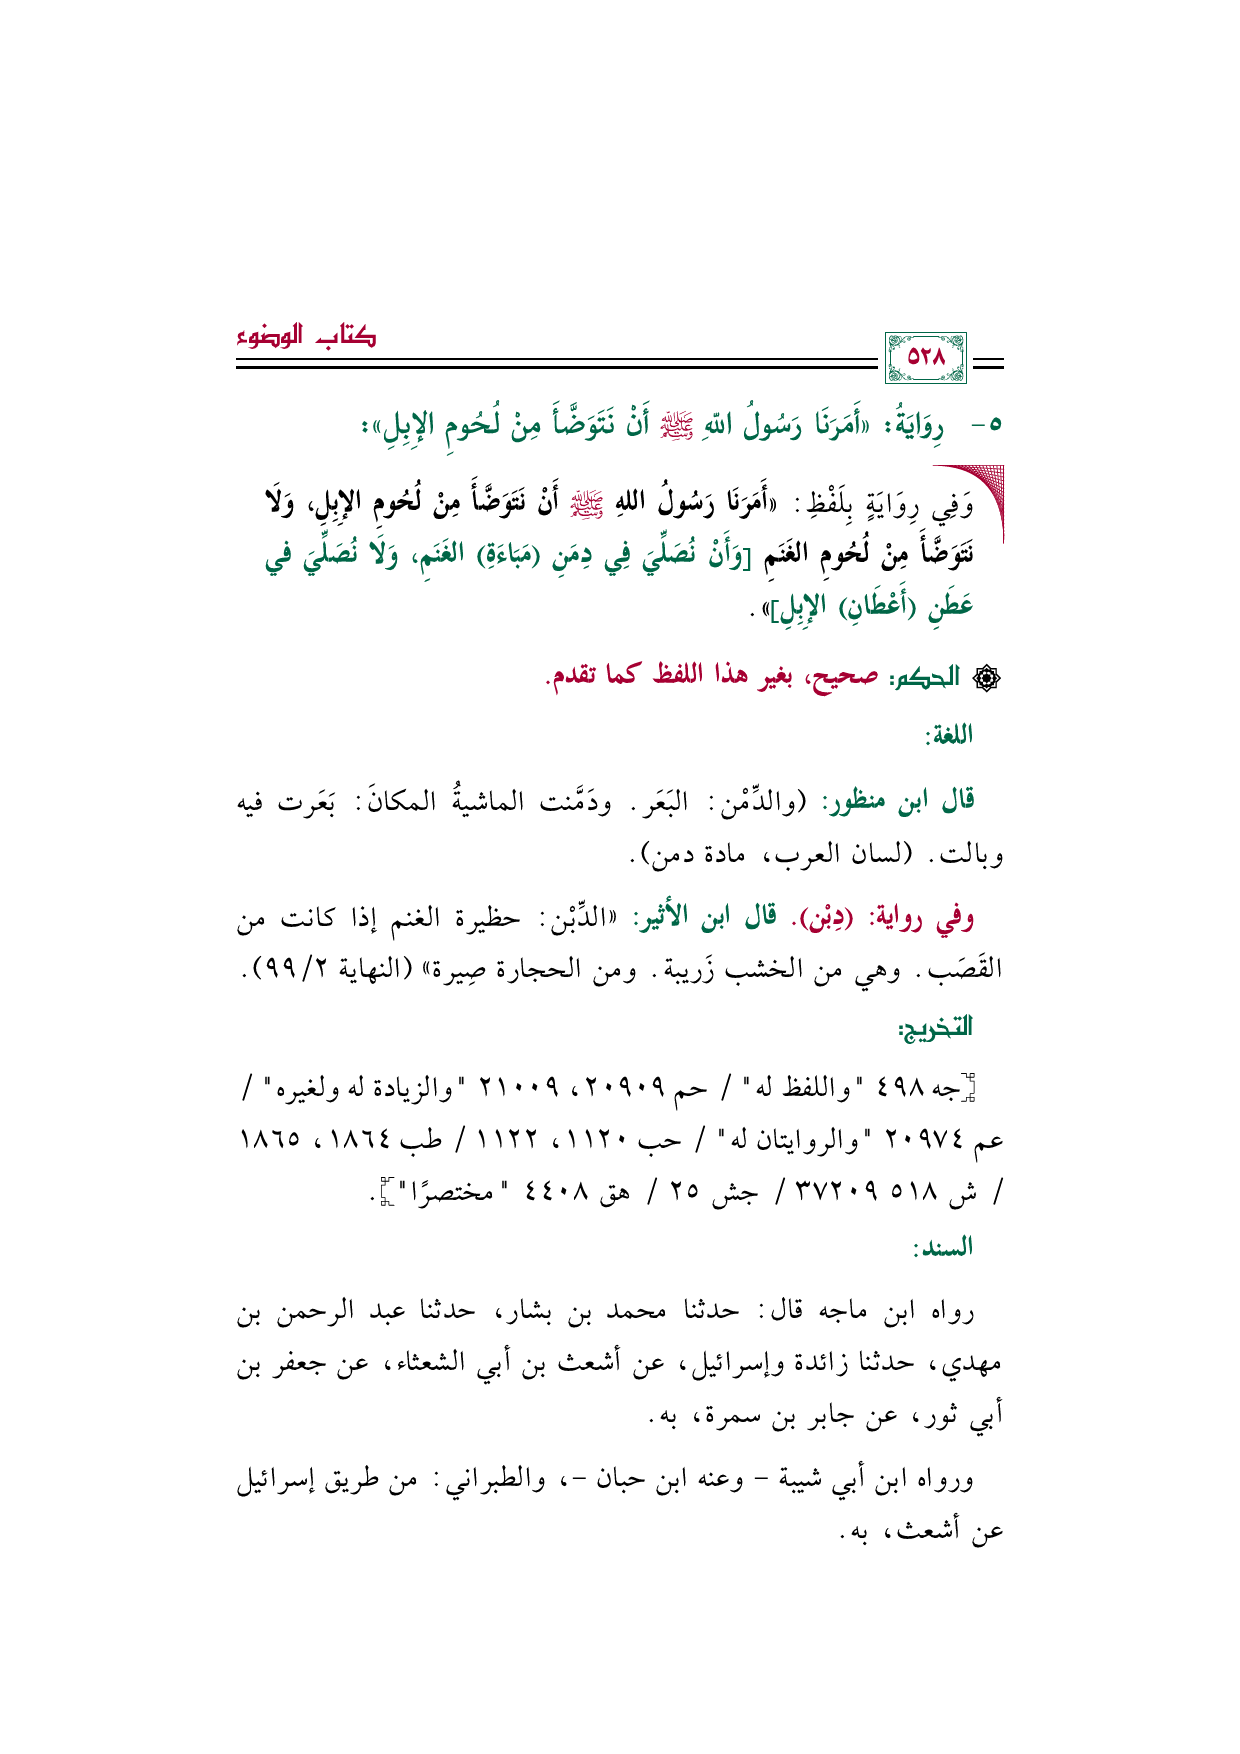 كتاب الوضوء
٥٢٨
٥- رِوَايَةُ: «أَمَرَنَا رَسُولُ اللهِ ﷺ أَنْ نَتَوَضَّأَ مِنْ لُحُومِ الإِبِلِ»:
وَفِي رِوَايَةٍ بِلَفْظِ: «أَمَرَنَا رَسُولُ اللهِ ﷺ أَنْ نَتَوَضَّأَ مِنْ لُحُومِ الإِبِلِ، وَلَا
نَتَوَضَّأَ مِنْ لُحُومِ الغَنَمِ [وَأَنْ نُصَلِّيَ فِي دِمَنِ (مَبَاءَةِ) الغَنَمِ، وَلَا نُصَلِّيَ في
عَطَنِ (أَعْطَانِ) الإِبِلِ]».
الحكم: صحيح، بغير هذا اللفظ كما تقدم.
اللغة:
قال ابن منظور: (والدِّمْن: البَعَر. ودَمَّنت الماشيةُ المكانَ: بَعَرت فيه
وبالت. (لسان العرب، مادة دمن).
وفي رواية: (دِبْن). قال ابن الأثير: «الدِّبْن: حظيرة الغنم إذا كانت من
القَصَب. وهي من الخشب زَريبة. ومن الحجارة صِيرة» (النهاية ٢/ ٩٩).
التخريج:
[جه ٤٩٨ "واللفظ له" / حم ٢٠٩٠٩، ٢١٠٠٩ "والزيادة له ولغيره" /
عم ٢٠٩٧٤ "والروايتان له" / حب ١١٢٠، ١١٢٢ / طب ١٨٦٤، ١٨٦٥
/ ش ٥١٨ ٣٧٢٠٩ / جش ٢٥ / هق ٤٤٠٨ "مختصرًا"].
السند:
رواه ابن ماجه قال: حدثنا محمد بن بشار، حدثنا عبد الرحمن بن
مهدي، حدثنا زائدة وإسرائيل، عن أشعث بن أبي الشعثاء، عن جعفر بن
أبي ثور، عن جابر بن سمرة، به.
ورواه ابن أبي شيبة - وعنه ابن حبان -، والطبراني: من طريق إسرائيل
عن أشعث، به.